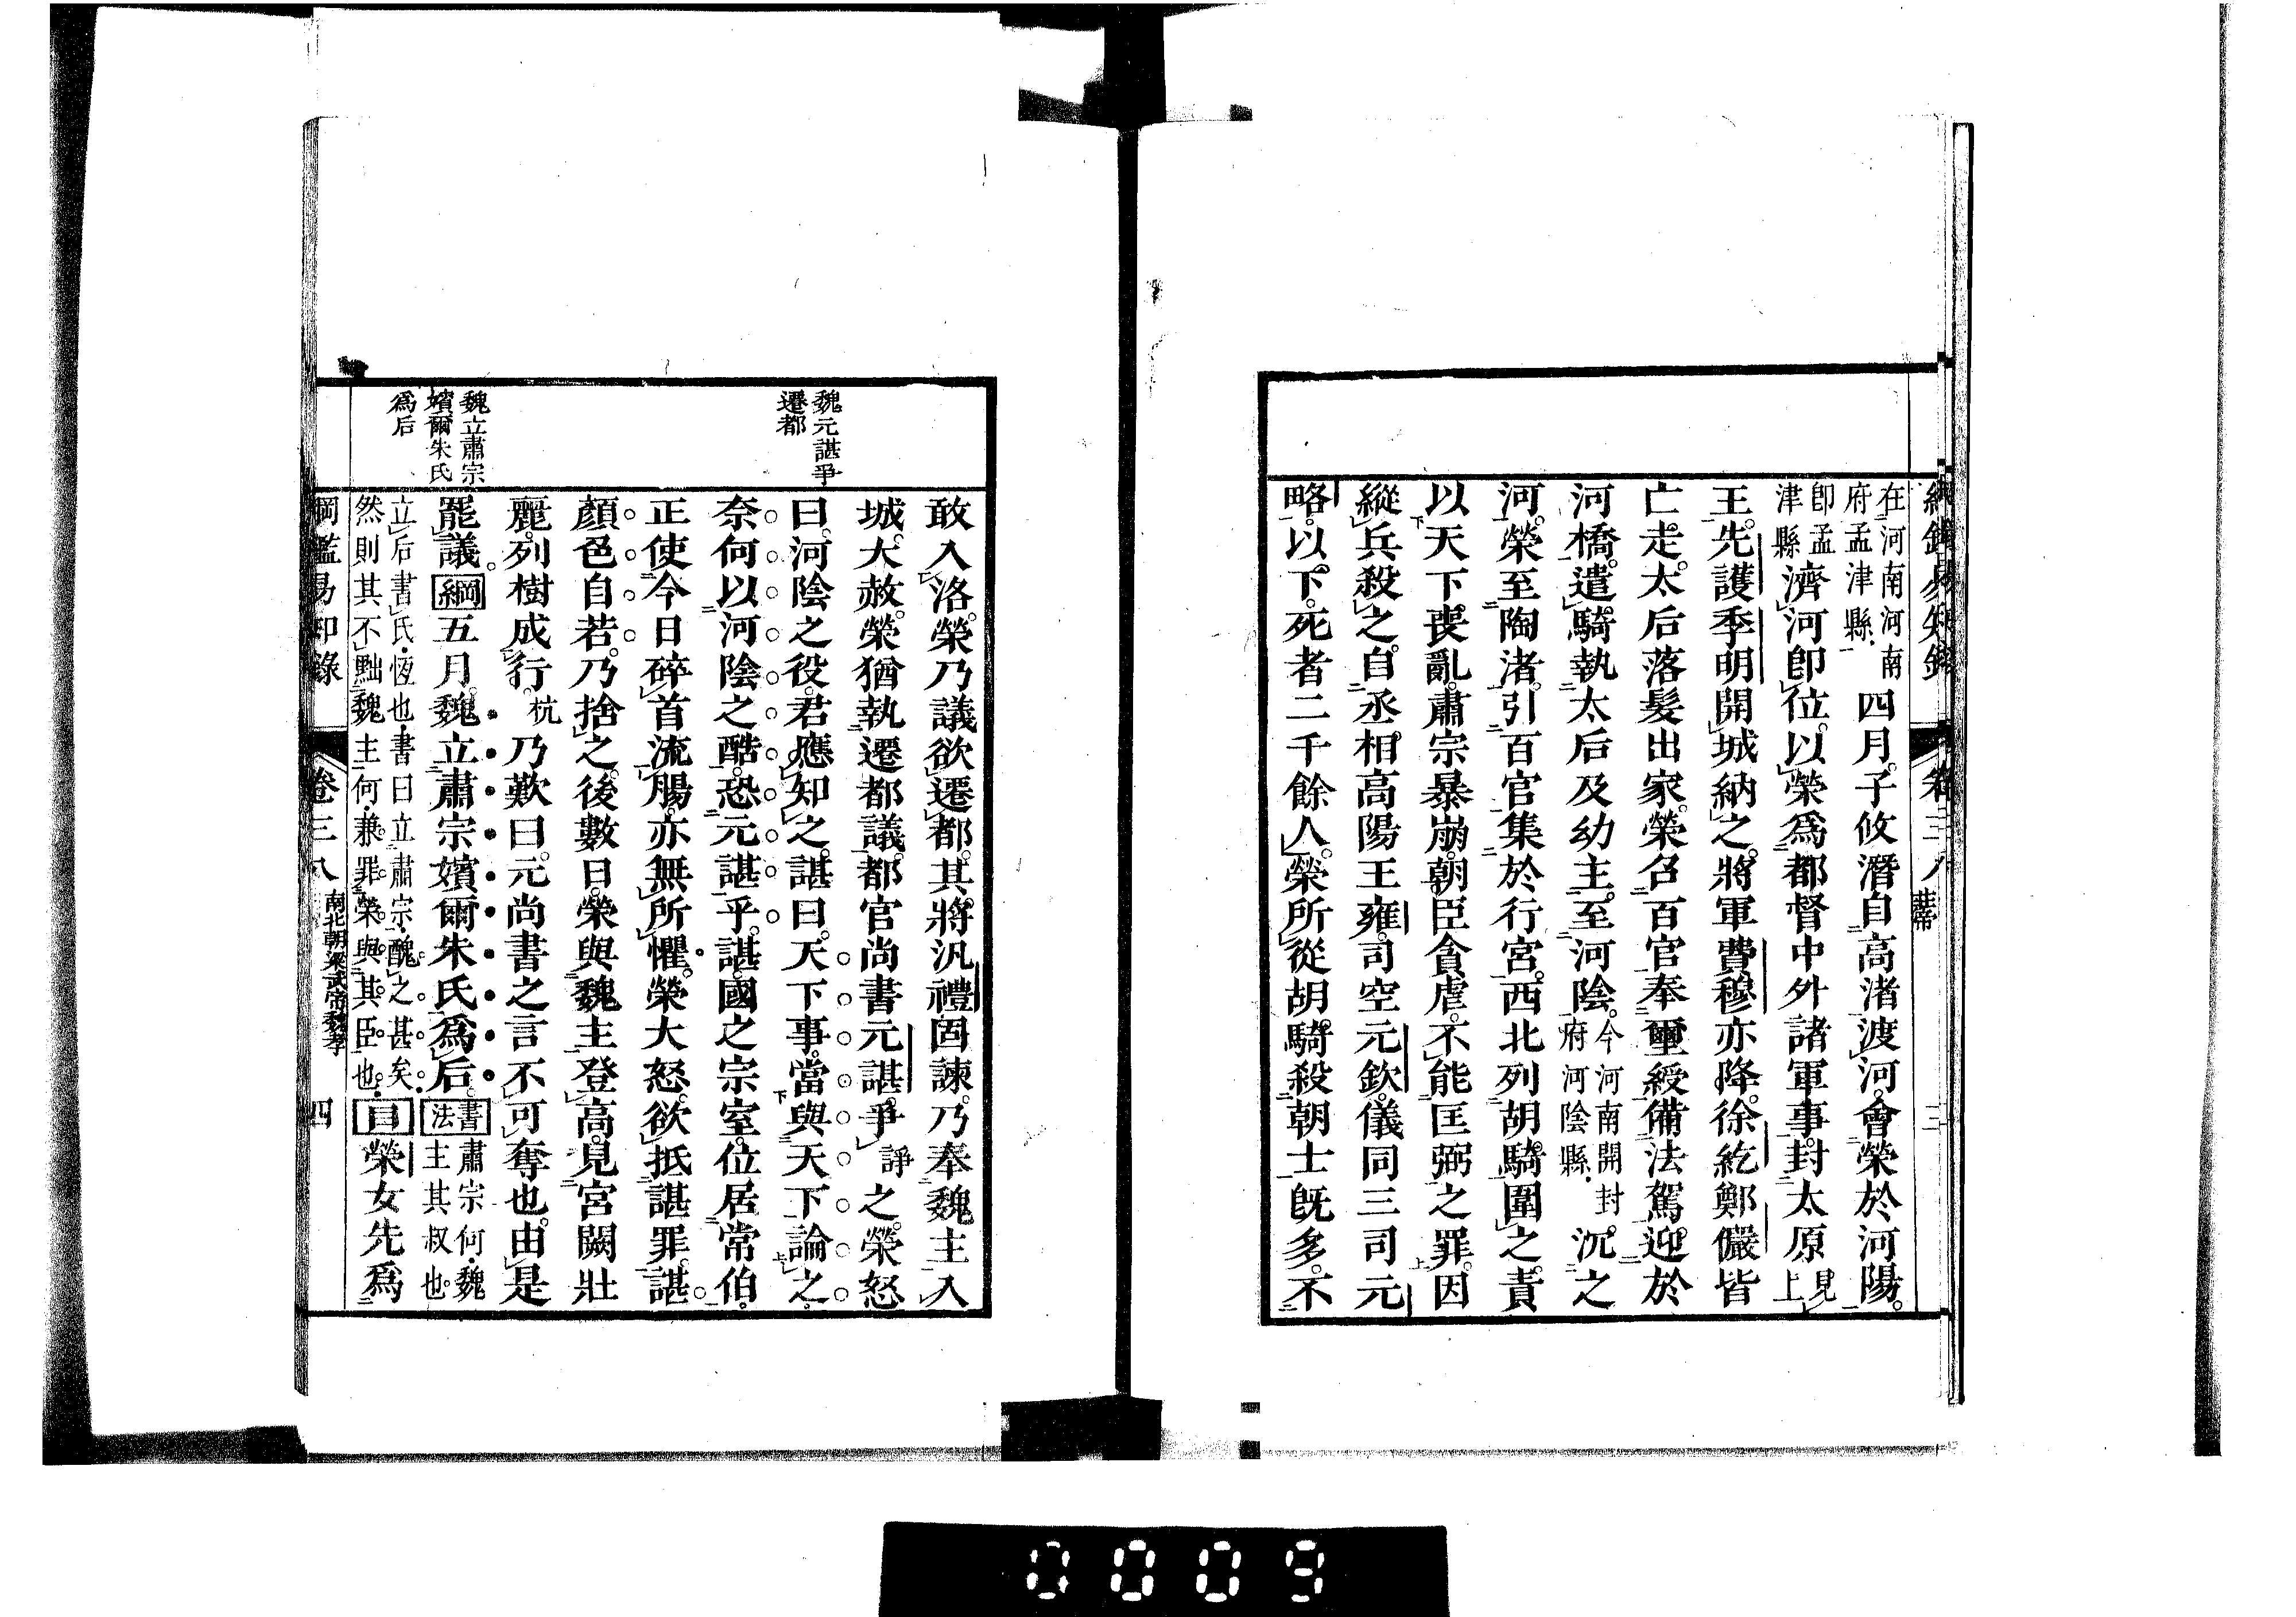 綱鑑易知錄 卷三八 莊帝 三
在河南河南
府孟津縣 四月子攸潛自高渚渡河會榮於河陽
卽孟
津縣 濟河卽位以榮爲都督中外諸軍事封太原 見
上
王先護季明開城納之將軍費穆亦降徐紇鄭儼皆
亡走太后落髮出家榮召百官奉璽綬備法駕迎於
河橋遣騎執太后及幼主至河陰 今河南開封
府河陰縣 沉之
河榮至陶渚引百官集於行宮西北列胡騎圍之責
以天下喪亂肅宗暴崩朝臣貪虐不能匡弼之罪因
縱兵殺之自丞相高陽王雍司空元欽儀同三司元
略以下死者二千餘人榮所從胡騎殺朝士旣多不
敢入洛榮乃議欲遷都其將汎禮固諫乃奉魏主入
城大赦榮猶執遷都議都官尚書元諶爭 諍 之榮怒
曰河陰之役君應知之諶曰天下事當與天下論之
奈何以河陰之酷恐元諶乎諶國之宗室位居常伯
正使今日碎首流腸亦無所懼榮大怒欲抵諶罪諶
顏色自若乃捨之後數日榮與魏主登高見宮闕壯
麗列樹成行 杭 乃歎曰元尚書之言不可奪也由是
罷議 綱 五月魏立肅宗嬪爾朱氏爲后 書法 肅宗何魏
主其叔也
立后書氏恆也書曰立肅宗醜之甚矣
然則其不黜魏主何兼罪榮與其臣也 目 榮女先爲
魏元諶爭
遷都
魏立肅宗
嬪爾朱氏
爲后
綱鑑易知錄 卷三八 南北朝梁武帝魏孝 四
0009